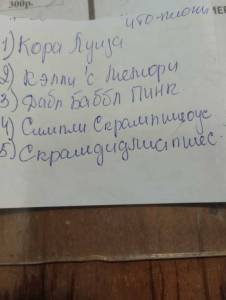 300р.
что-плохи
1) Кора Луиза
2) Кэлли'с Мемори
3) Фабл Баббл Пинк
4) Симпли Скрампшеоус
5) Скрамдидлиспшес